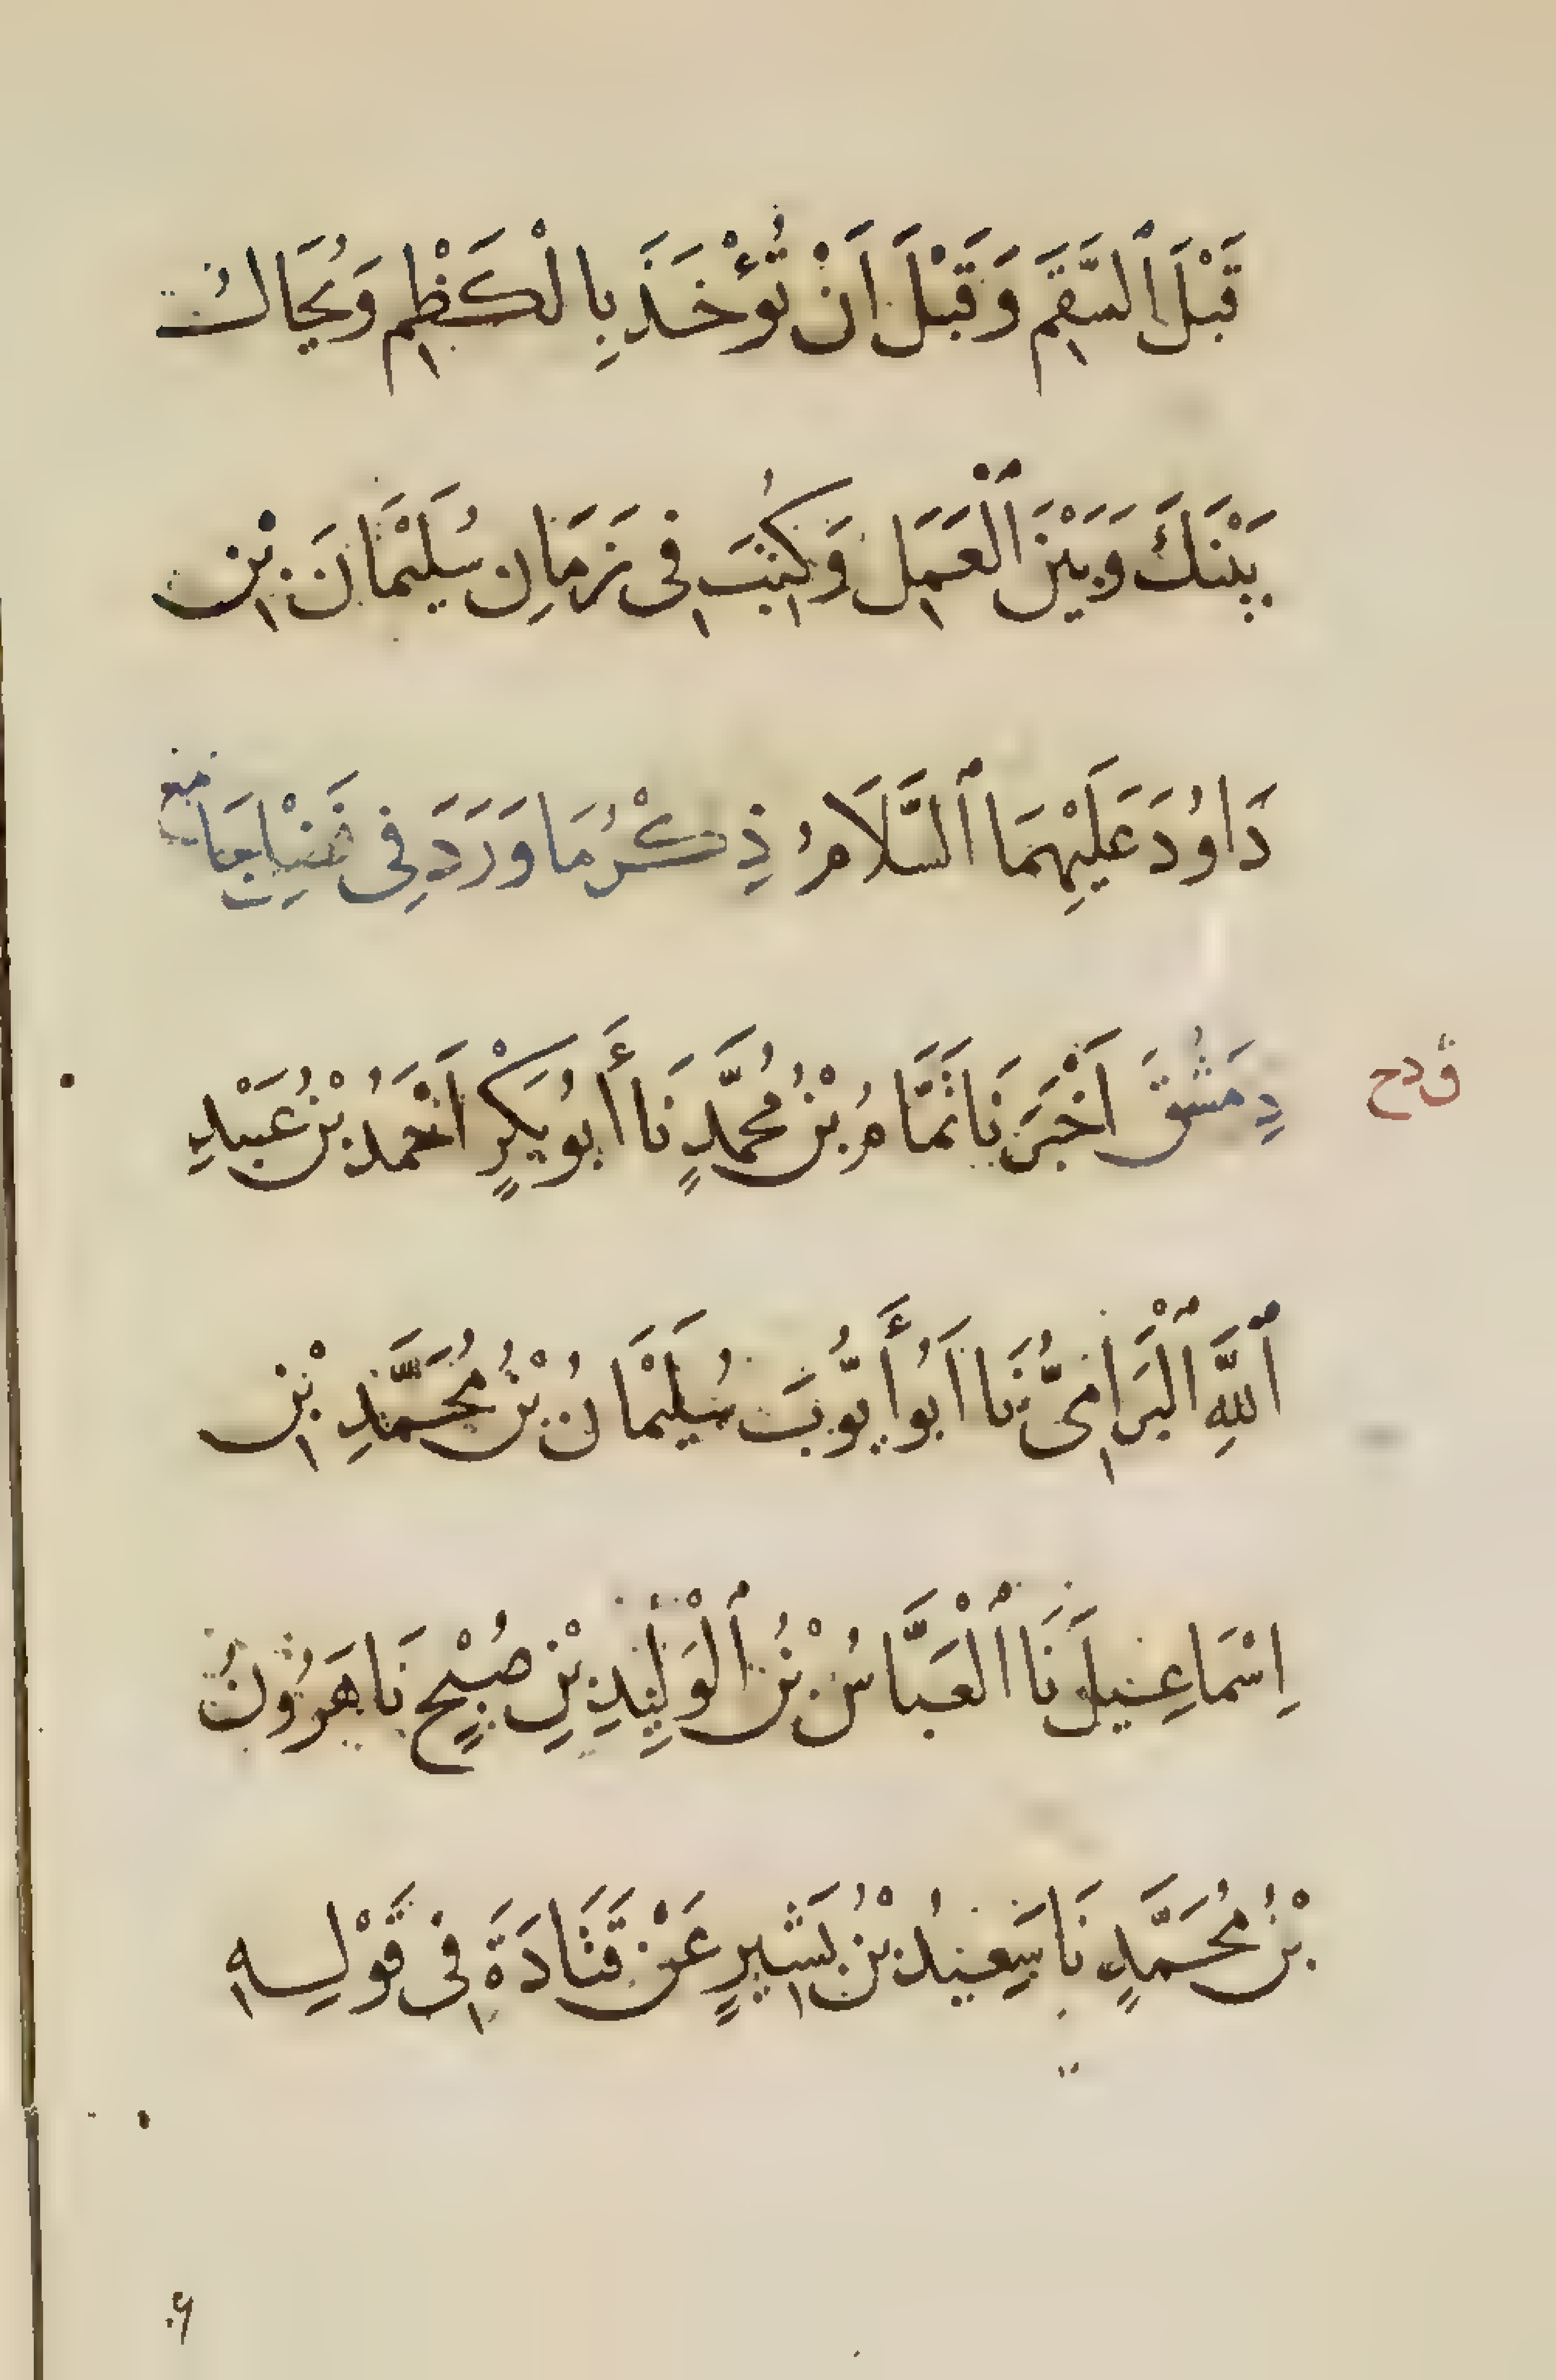 قَبْلَ ٱلسَّقَمِ وَقَبْلَ اَنْ تُؤْخَذَ بِالْكَظْمِ وَيُحَالُ
بَيْنَكَ وَبَيْنَ ٱلْعَمَلِ وَكُتِبَ فِى زَمَانِ سُلَيْمَانَ بْنِ
دَاوُدَ عَلَيْهِمَا ٱلسَّلَامُ ذِكْرُ مَا وَرَدَ فِى
ق دح
دِمَشْقَ اَخْبَرَنَا تَمَّامُ بْنُ مُحَمَّدٍ نَا أَبُو بَكْرٍ اَحْمَدُ بْنُ عَبْدِ
ٱللَّهِ ٱلْبَرَامِىُّ نَا اَبُو أَيُّوبَ سُلَيْمَانُ بْنُ مُحَمَّدِ بْنِ
اِسْمَاعِيلَ نَا ٱلْعَبَّاسُ بْنُ ٱلْوَلِيْدِ بْنِ صُبْحٍ نَا هَرُوْنُ
بْنُ مُحَمَّدٍ نَا سَعِيْدُ بْنُ بَشِيرٍ عَنْ قَتَادَةَ فِى قَوْلِهِ